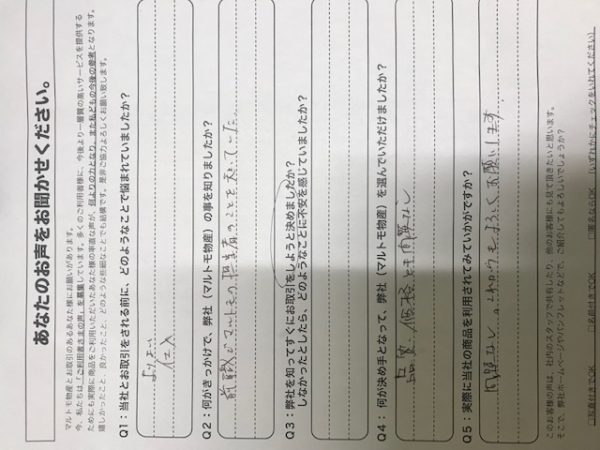 あなたのお声をお聞かせください。
マルトモ物産とお取引のあるあなた様にお願いがあります。
今、私たちは「ご利用者さまの声」を募集しています。多くのご利用者様に、今後より一層質の高いサービスを提供する
ためにも実際に商品をご利用いただいたあなた様の率直な声が、何よりの力となり、また私どもの今後の参考となります。
嬉しかったこと、良かったこと、どのような些細なことでも結構です。是非ご協力よろしくお願い致します。
Q1：当社とお取引をされる前に、どのようなことで悩まれていましたか？
よりよい
仕入
Q2：何がきっかけで、弊社（マルトモ物産）の事を知りましたか？
前職がマルトモの担当者のことを知っていた
Q3：弊社を知ってすぐにお取引をしようと決めましたか？
しなかったとしたら、どのようなことに不安を感じていましたか？
Q4：何が決め手となって、弊社（マルトモ物産）を選んでいただけましたか？
品質、価格とも問題なし
Q5：実際に当社の商品を利用されてみていかがですか？
問題なし。これからもよろしくお願いします
このお客様の声は、社内のスタッフで共有したり、他のお客様にも見て頂きたいと思います。
そこで、弊社ホームページやパンフレットなどで、ご紹介してもよろしいでしょうか？
□写真付きでOK □名前付きでOK □匿名ならOK （いずれかにチェックをいれてください）